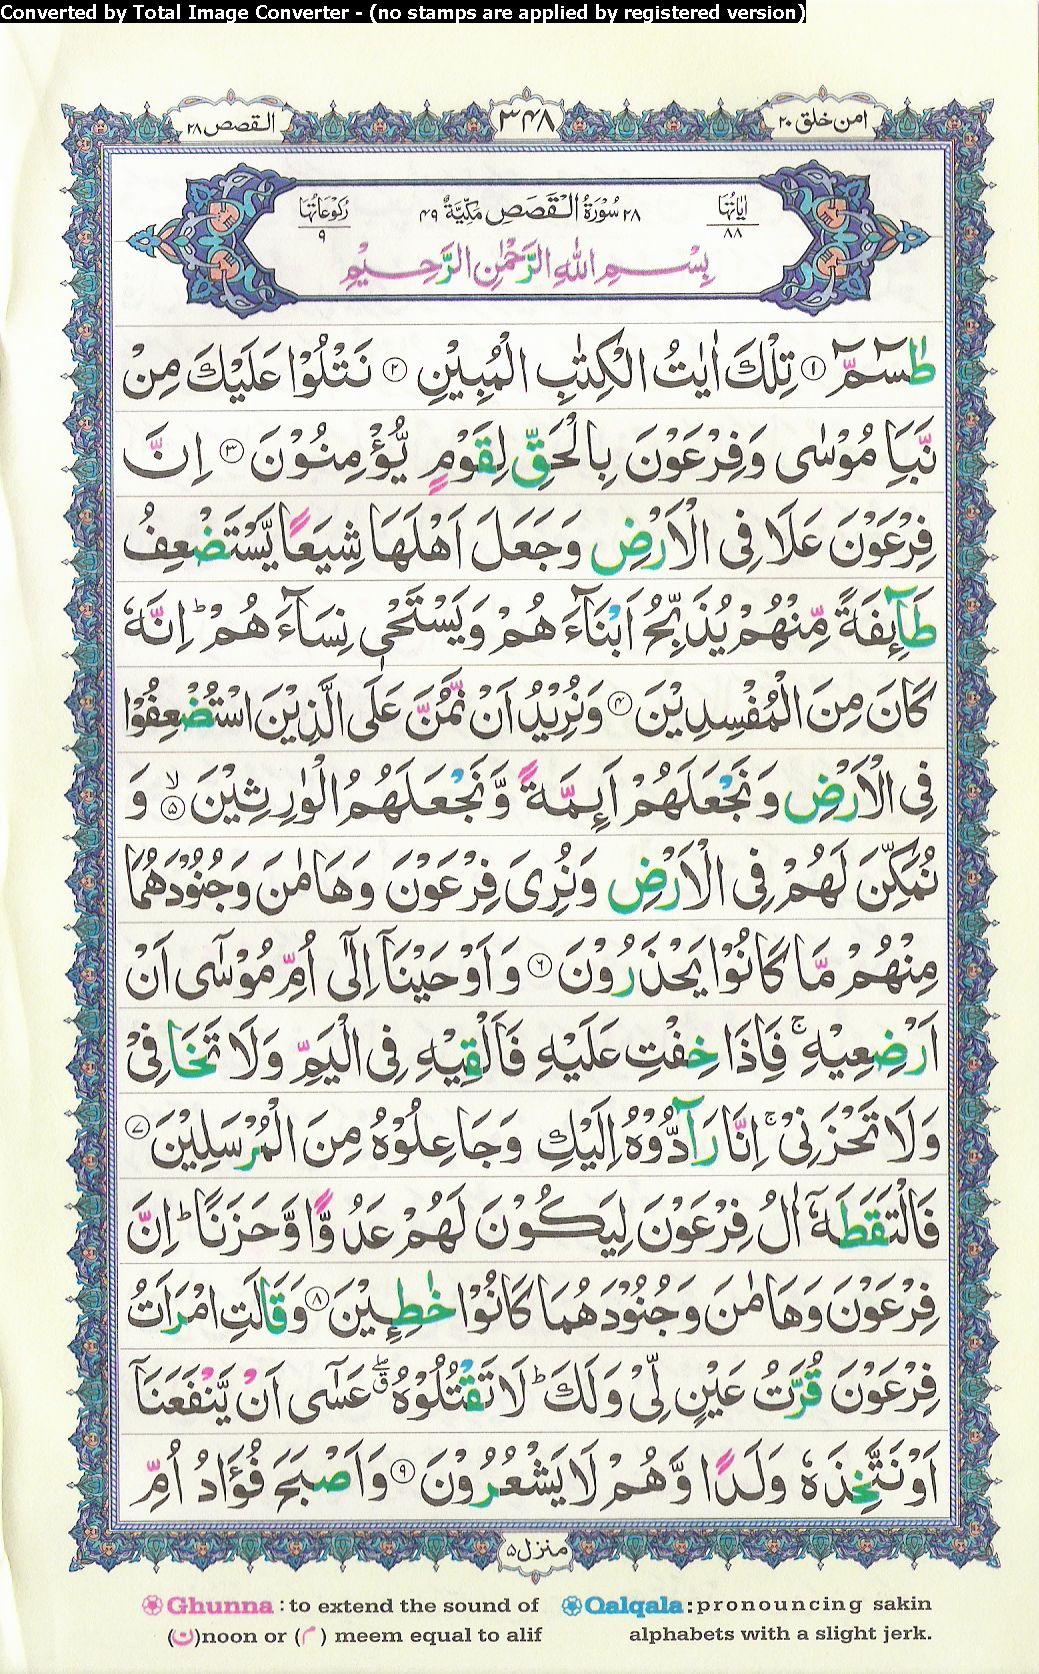 Converted by Total Image Converter - (no stamps are applied by registered version)
امن خلق ۲۰
۳۴۸
القصص ۲۸
اٰيَاتُهَا ۸۸
۲۸ سُوْرَةُ الْقَصَصِ مَكِّيَّةٌ ۴۹
رُكُوْعَاتُهَا ۹
بِسْمِ اللّٰهِ الرَّحْمٰنِ الرَّحِيْمِ
طٰسٓمّٓ ۝۱ تِلْكَ اٰيٰتُ الْكِتٰبِ الْمُبِيْنِ ۝۲ نَتْلُوْا عَلَيْكَ مِنْ
نَّبَاِ مُوْسٰى وَفِرْعَوْنَ بِالْحَقِّ لِقَوْمٍ يُّؤْمِنُوْنَ ۝۳ اِنَّ
فِرْعَوْنَ عَلَا فِى الْاَرْضِ وَجَعَلَ اَهْلَهَا شِيَعًا يَّسْتَضْعِفُ
طَآئِفَةً مِّنْهُمْ يُذَبِّحُ اَبْنَآءَهُمْ وَيَسْتَحْىٖ نِسَآءَهُمْ ؕ اِنَّهٗ
كَانَ مِنَ الْمُفْسِدِيْنَ ۝۴ وَنُرِيْدُ اَنْ نَّمُنَّ عَلَى الَّذِيْنَ اسْتُضْعِفُوْا
فِى الْاَرْضِ وَنَجْعَلَهُمْ اَئِمَّةً وَّنَجْعَلَهُمُ الْوٰرِثِيْنَ ۝۵ۙ وَ
نُمَكِّنَ لَهُمْ فِى الْاَرْضِ وَنُرِىَ فِرْعَوْنَ وَهَامٰنَ وَجُنُوْدَهُمَا
مِنْهُمْ مَّا كَانُوْا يَحْذَرُوْنَ ۝۶ وَاَوْحَيْنَآ اِلٰٓى اُمِّ مُوْسٰٓى اَنْ
اَرْضِعِيْهِ ۚ فَاِذَا خِفْتِ عَلَيْهِ فَاَلْقِيْهِ فِى الْيَمِّ وَلَا تَخَافِىْ
وَلَا تَحْزَنِىْ ۚ اِنَّا رَآدُّوْهُ اِلَيْكِ وَجَاعِلُوْهُ مِنَ الْمُرْسَلِيْنَ ۝۷
فَالْتَقَطَهٗٓ اٰلُ فِرْعَوْنَ لِيَكُوْنَ لَهُمْ عَدُوًّا وَّحَزَنًا ؕ اِنَّ
فِرْعَوْنَ وَهَامٰنَ وَجُنُوْدَهُمَا كَانُوْا خٰطِـِٕيْنَ ۝۸ وَقَالَتِ امْرَاَتُ
فِرْعَوْنَ قُرَّتُ عَيْنٍ لِّىْ وَلَكَ ؕ لَا تَقْتُلُوْهُ ۖق عَسٰٓى اَنْ يَّنْفَعَنَآ
اَوْ نَتَّخِذَهٗ وَلَدًا وَّهُمْ لَا يَشْعُرُوْنَ ۝۹ وَاَصْبَحَ فُؤَادُ اُمِّ
منزل ۵
Ghunna : to extend the sound of
(ن)noon or (م) meem equal to alif
Qalqala : pronouncing sakin
alphabets with a slight jerk.